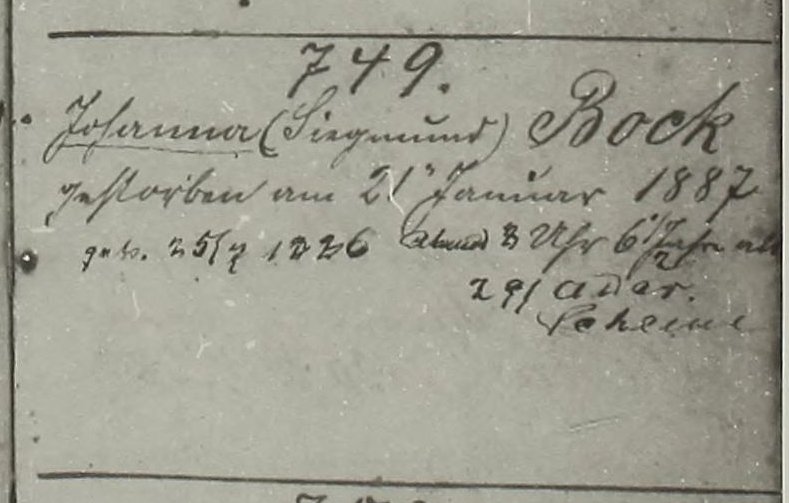 749.
Johanna (Siegmund) Bock
gestorben am 21" Januar 1887
geb. 25/7 1826 Abend 8 Uhr 6 1/2 Jahr alt
Adar.
Scheine